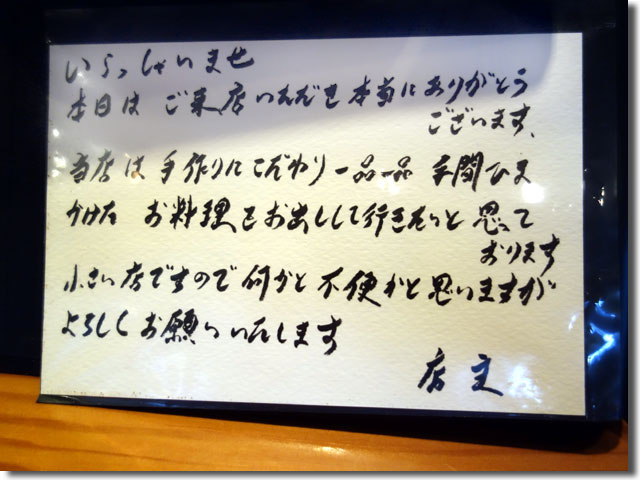 いらっしゃいませ
本日は ご来店いただき本当にありがとう
ございます、
当店は手作りにこだわり一品一品 手間ひま
かけた お料理をお出しして行きたいと 思って
おります
小さい店ですので何かと不便かと思いますが
よろしくお願いいたします
店主